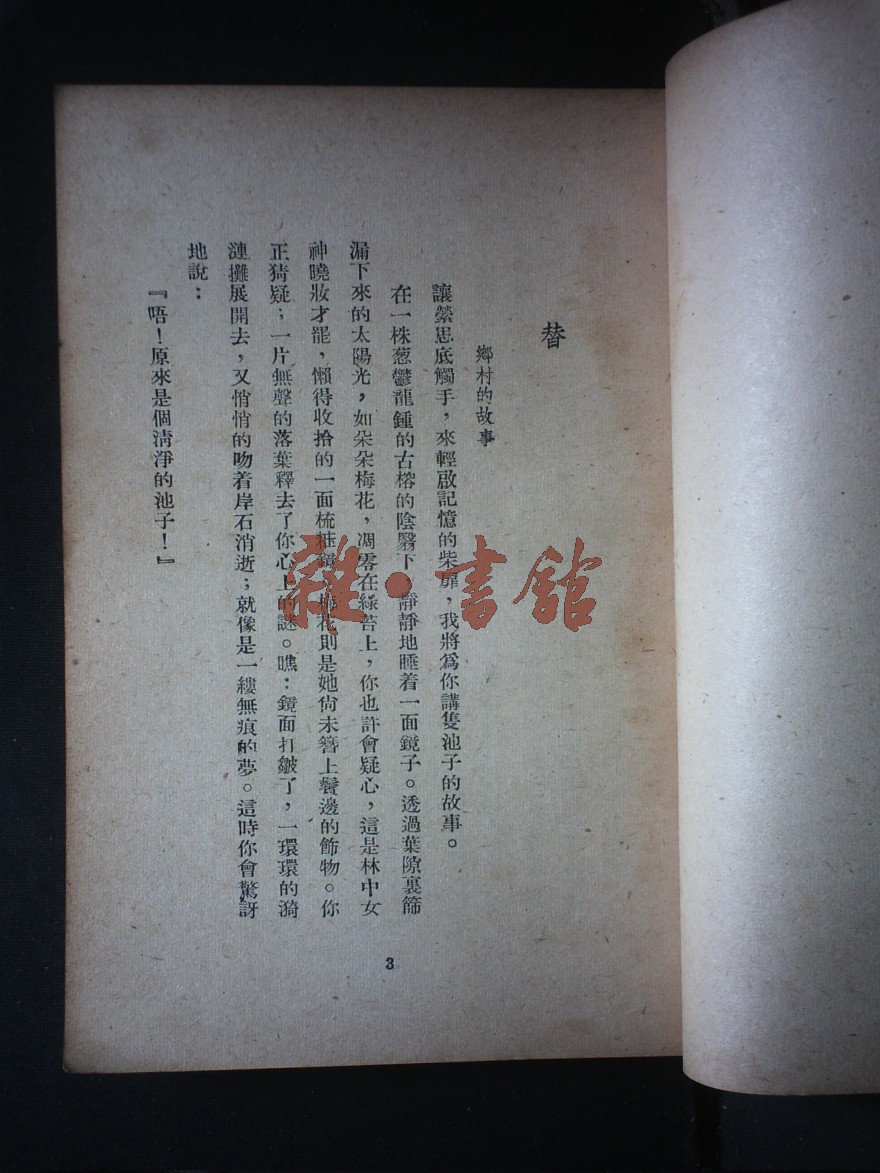 替
鄉村的故事
讓縈思底觸手，來輕啟記憶的柴扉，我將爲你講隻池子的故事。
在一株葱鬱龍鍾的古榕的陰翳下，靜靜地睡着一面鏡子。透過葉隙裏篩
漏下來的太陽光，如朵朵梅花，凋零在綠苔上，你也許會疑心，這是林中女
神曉妝才罷，懶得收拾的一面梳粧鏡，梅花則是她尙未簪上鬢邊的飾物。你
正猜疑；一片無聲的落葉釋去了你心上的謎。瞧：鏡面打皺了，一環環的漪
漣攤展開去，又悄悄的吻着岸石消逝；就像是一縷無痕的夢。這時你會驚訝
地說：
『唔！原來是個清淨的池子！』
3
雜·書館